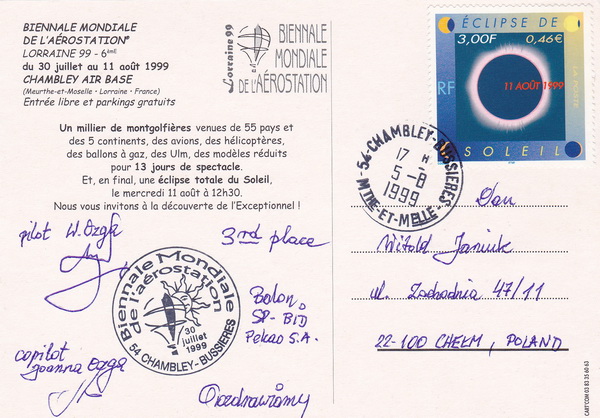 BIENNALE MONDIALE
DE L'AÉROSTATION®
LORRAINE 99 - 6ème
du 30 juillet au 11 août 1999
CHAMBLEY AIR BASE
(Meurthe-et-Moselle • Lorraine • France)
Entrée libre et parkings gratuits
Un millier de montgolfières venues de 55 pays et
des 5 continents, des avions, des hélicoptères,
des ballons à gaz, des Ulm, des modèles réduits
pour 13 jours de spectacle.
Et, en final, une éclipse totale du Soleil,
le mercredi 11 août à 12h30.
Nous vous invitons à la découverte de l'Exceptionnel !
pilot W. Ozga
copilot
Joanna Ozga
Biennale Mondiale
de l'aérostation
30
juillet
1999
54 CHAMBLEY-BUSSIERES
3rd place
Balon
SP-BID
Pekao S.A.
Pozdrawiamy
Lorraine 99
BIENNALE
MONDIALE
DE L'AÉROSTATION
ÉCLIPSE DE
3,00F 0,46€
RF
11 AOÛT 1999
LA POSTE
SOLEIL
54-CHAMBLEY-BUSSIERES
17 H
5-8
1999
MTHE-ET-MELLE
Pan
Witold Janiuk
ul. Zachodnia 47/11
22-100 CHEŁM, POLAND
CART'COM 03 83 35 60 63